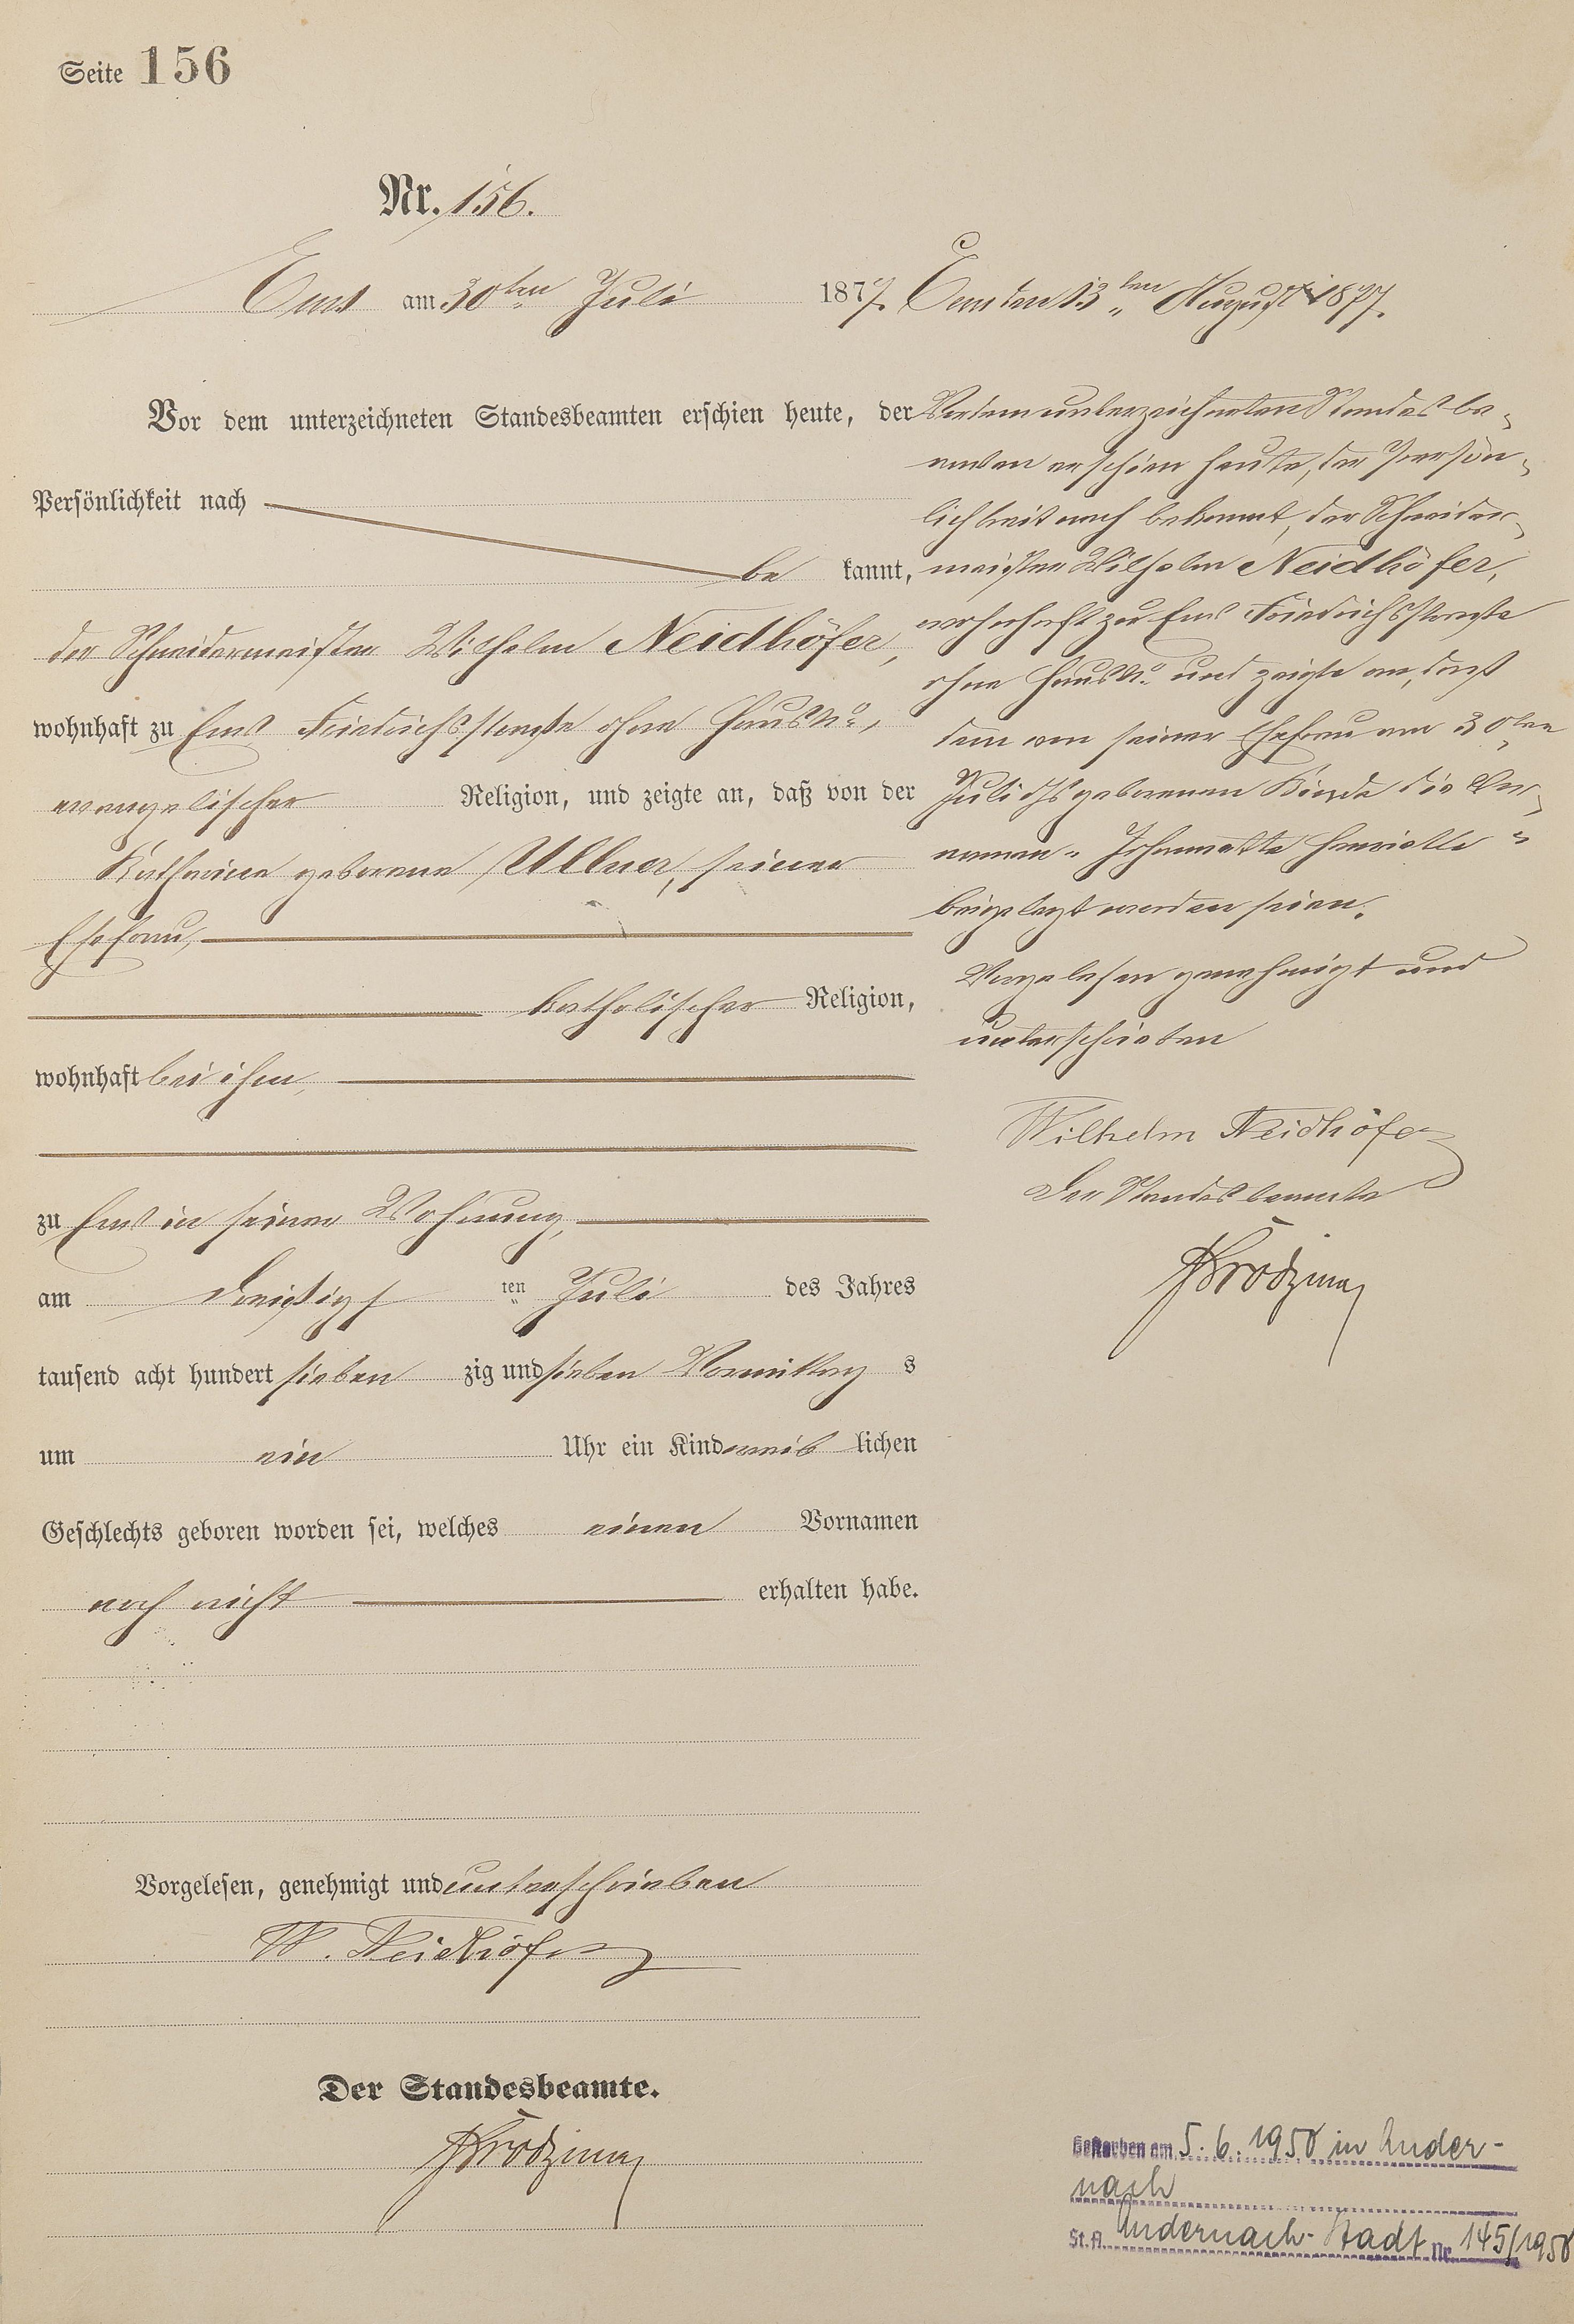 Seite 156
Nr. 156.
Ems am 30ten Juli 1877.
Vor dem unterzeichneten Standesbeamten erschien heute, der
Persönlichkeit nach
be kannt,
der Schneidermeister Wilhelm Neidhöfer,
wohnhaft zu Ems Friedrichsstraße ohne Haus No.,
evangelischer Religion, und zeigte an, daß von der
Katharina geborene Ullner, seiner
Ehefrau,
katholischer Religion,
wohnhaft bei ihm,
zu Ems in seiner Wohnung,
am dreißigs ten Juli des Jahres
tausend acht hundert sieben zig und sieben Vormittag s
um ein Uhr ein Kind weib lichen
Geschlechts geboren worden sei, welches einen Vornamen
noch nicht erhalten habe.
Vorgelesen, genehmigt und unterschrieben
W. Neidhöfer
Der Standesbeamte.
Ems den 13ten August 1877.
Vor dem unterzeichneten Standesbe-
amten erschien heute, der Persön-
lichkeit nach bekannt, der Schneider-
meister Wilhelm Neidhöfer,
wohnhaft zu Ems Friedrichsstraße
ohne Haus No. und zeigte an, daß
dem von seiner Ehefrau am 30ten
Juli ds geborenen Kinde die Vor-
namen " Johannette Henriette "
beigelegt worden seien.
Vorgelesen genehmigt und
unterschrieben
Wilhelm Neidhöfer
Der Standesbeamte
Gestorben am 5.6.1958 in Ander-
nach
St.A. Andernach-Stadt Nr. 145/1958